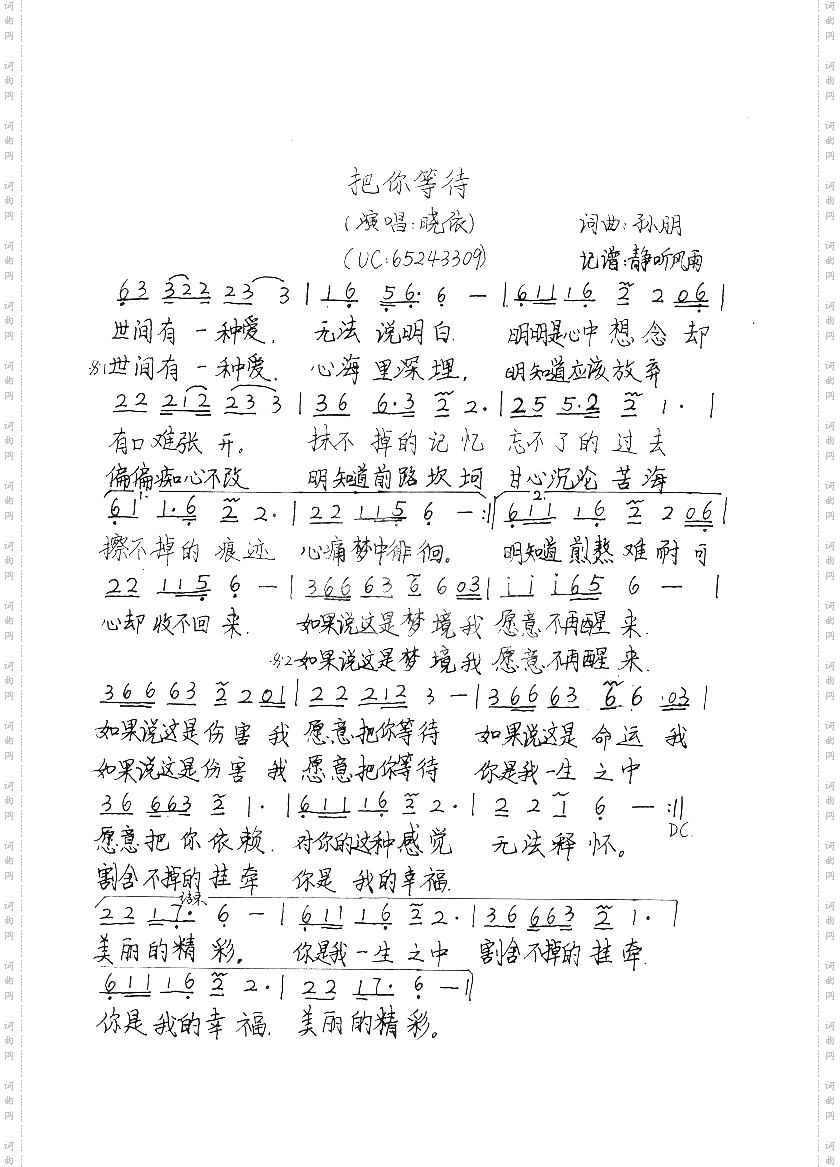 把你等待
(演唱:晓依) 词曲:孙朋
(UC:65243309) 记谱:静听风雨
63 322 23 3 | 16 56· 6 — | 61116 2 2 06 |
世间有一种爱. 无法说明白. 明明是心中想念却
世间有一种爱. 心海里深埋, 明知道应该放弃
22 212 23 3 | 36 6·3 2 2· | 25 5·2 2 1· |
有口难张开。 抹不掉的记忆 忘不了的过去
偏偏痴心不改 明知道前路坎坷 甘心沉沦苦海
1. 2.
61 1·6 2 2· | 22 115 6 — :‖ 611 16 2 2 06 |
擦不掉的痕迹 心痛梦中徘徊。 明知道煎熬难耐可
22 115 6 — | 36663 6 6 03 | i i i65 6 — |
心却收不回来. 如果说这是梦境我愿意不再醒来.
如果说这是梦境我愿意不再醒来.
36663 2 2 01 | 22 212 3 — | 36663 6 6 03 |
如果说这是伤害我愿意把你等待 如果说这是命运我
如果说这是伤害我愿意把你等待 你是我一生之中
36 663 2 1· | 611 16 2 2· | 2 2 1 6 — :‖
D.C.
愿意把你依赖. 对你的这种感觉 无法释怀。
割舍不掉的挂牵 你是我的幸福.
结束
22 17· 6 — | 611 16 2 2· | 36 663 2 1· |
美丽的精彩。 你是我一生之中 割舍不掉的挂牵.
611 16 2 2· | 22 17· 6 — ‖
你是我的幸福. 美丽的精彩。
词曲网